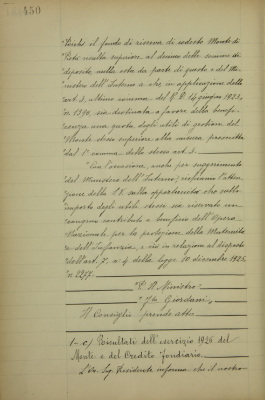 450
"Poiché il fondo di riserva di codesto Monte di
Pietà risulta superiore al decimo delle somme di
deposito, nulla osta da parte di questo e del Mi-
nistero dell'Interno a che in applicazione della
art. 3, ultimo comma del R.D. 14 giugno 1923
n. 1396 sia destinata a favore della benefi-
cenza una quota degli utili di gestione del
Monte stesso superiore alla misura prescritta
dal 1° comma dello stesso art. 3.
"Con l'occasione, anche per suggerimento
del Ministero dell'Interno, richiamo l'atten-
zione della S.V. sulla opportunità che sullo
importo degli utili stessi sia riservato un
congruo contributo a beneficio dell'Opera
Nazionale per la protezione della Maternità
e dell'Infanzia, e ciò in relazione al disposto
dell'art. 4 della legge 10 dicembre 1925
n. 2277.
"P. Il Ministro
"f.to Giordani"
Il Consiglio prende atto.
1-c) Risultati dell'esercizio 1926 del
Monte e del Credito fondiario.
L'On. Sig. Presidente informa che il nostro